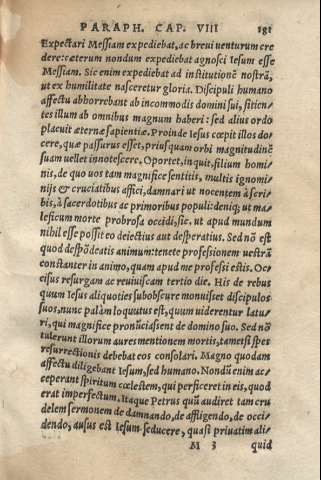 PARAPH. CAP. VIII 181
Expectari Messiam expediebat, ac breui uenturum cre
dere: cæterum nondum expediebat agnosci Iesum esse
Messiam. Sic enim expediebat ad institutionē nostrā,
ut ex humilitate nasceretur gloria. Discipuli humano
affectu abhorrebant ab incommodis domini sui, sitien-
tes illum ab omnibus magnum haberi: sed alius ordo
placuit æternæ sapientiæ. Proinde Iesus cœpit illos do
cere, quæ passurus esset, priusquam orbi magnitudinē
suam uellet innotescere. Oportet, inquit, filium homi-
nis, de quo uos tam magnifice sentitis, multis ignomi-
nijs & cruciatibus affici, damnari ut nocentem à scri-
bis, à sacerdotibus ac primoribus populi: deniq; ut ma-
leficum morte probrosa occidi, sic. ut apud mundum
nihil esse possit eo deiectius aut desperatius. Sed nō est
quod despōdeatis animum: tenete professionem uestrā
constanter in animo, quam apud me professi estis. Oc-
cisus resurgam ac reuiuiscam tertio die. His de rebus
quum Iesus aliquoties subobscure monuisset discipulos
suos, nunc palàm loquutus est, quum uiderentur latu-
ri, qui magnifice pronūciassent de domino suo. Sed nō
tulerunt illorum aures mentionem mortis, tametsi spes
resurrectionis debebat eos consolari. Magno quodam
affectu diligebant Iesum, sed humano. Nondū enim ac-
ceperant spiritum cœlestem, qui perficeret in eis, quod
erat imperfectum. Itaque Petrus quū audiret tam cru
delem sermonem de damnando, de affligendo, de occi-
dendo, ausus est Iesum seducere, quasi priuatim ali-
M 3 quid